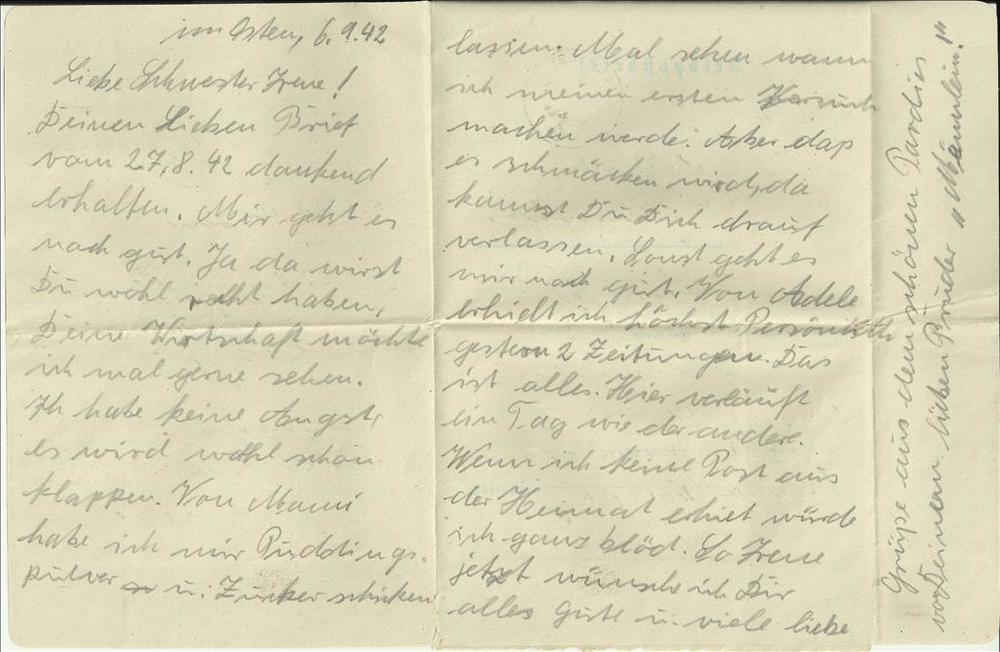 im Osten, 6.9.42
Liebe Schwester Irene!
Deinen Lieben Brief
vom 27.8.42 dankend
erhalten. Mir geht es
noch gut. Ja da wirst
Du wohl recht haben,
Deine Wirtschaft möchte
ich mal gerne sehen.
Ich habe keine Angst,
es wird wohl schon
klappen. Von Mami
habe ich mir Puddings-
pulver u. Zucker schicken
lassen. Mal sehen wann
ich meinen ersten Versuch
machen werde. Aber daß
es schmäcken wird, da
kannst Du Dich drauf
verlassen. Sonst geht es
mir noch gut. Von Adele
erhielt ich höchst Persönlich
gestern 2 Zeitungen. Das
ist alles. Hier verläuft
ein Tag wie der andere.
Wenn ich keine Post aus
der Heimat erhiet würde
ich ganz blöd. So Irene
jetzt wünsche ich Dir
alles gute u. viele liebe
Grüße aus dem schönen Pardies
von Deinem lieben Bruder "Männlein!"